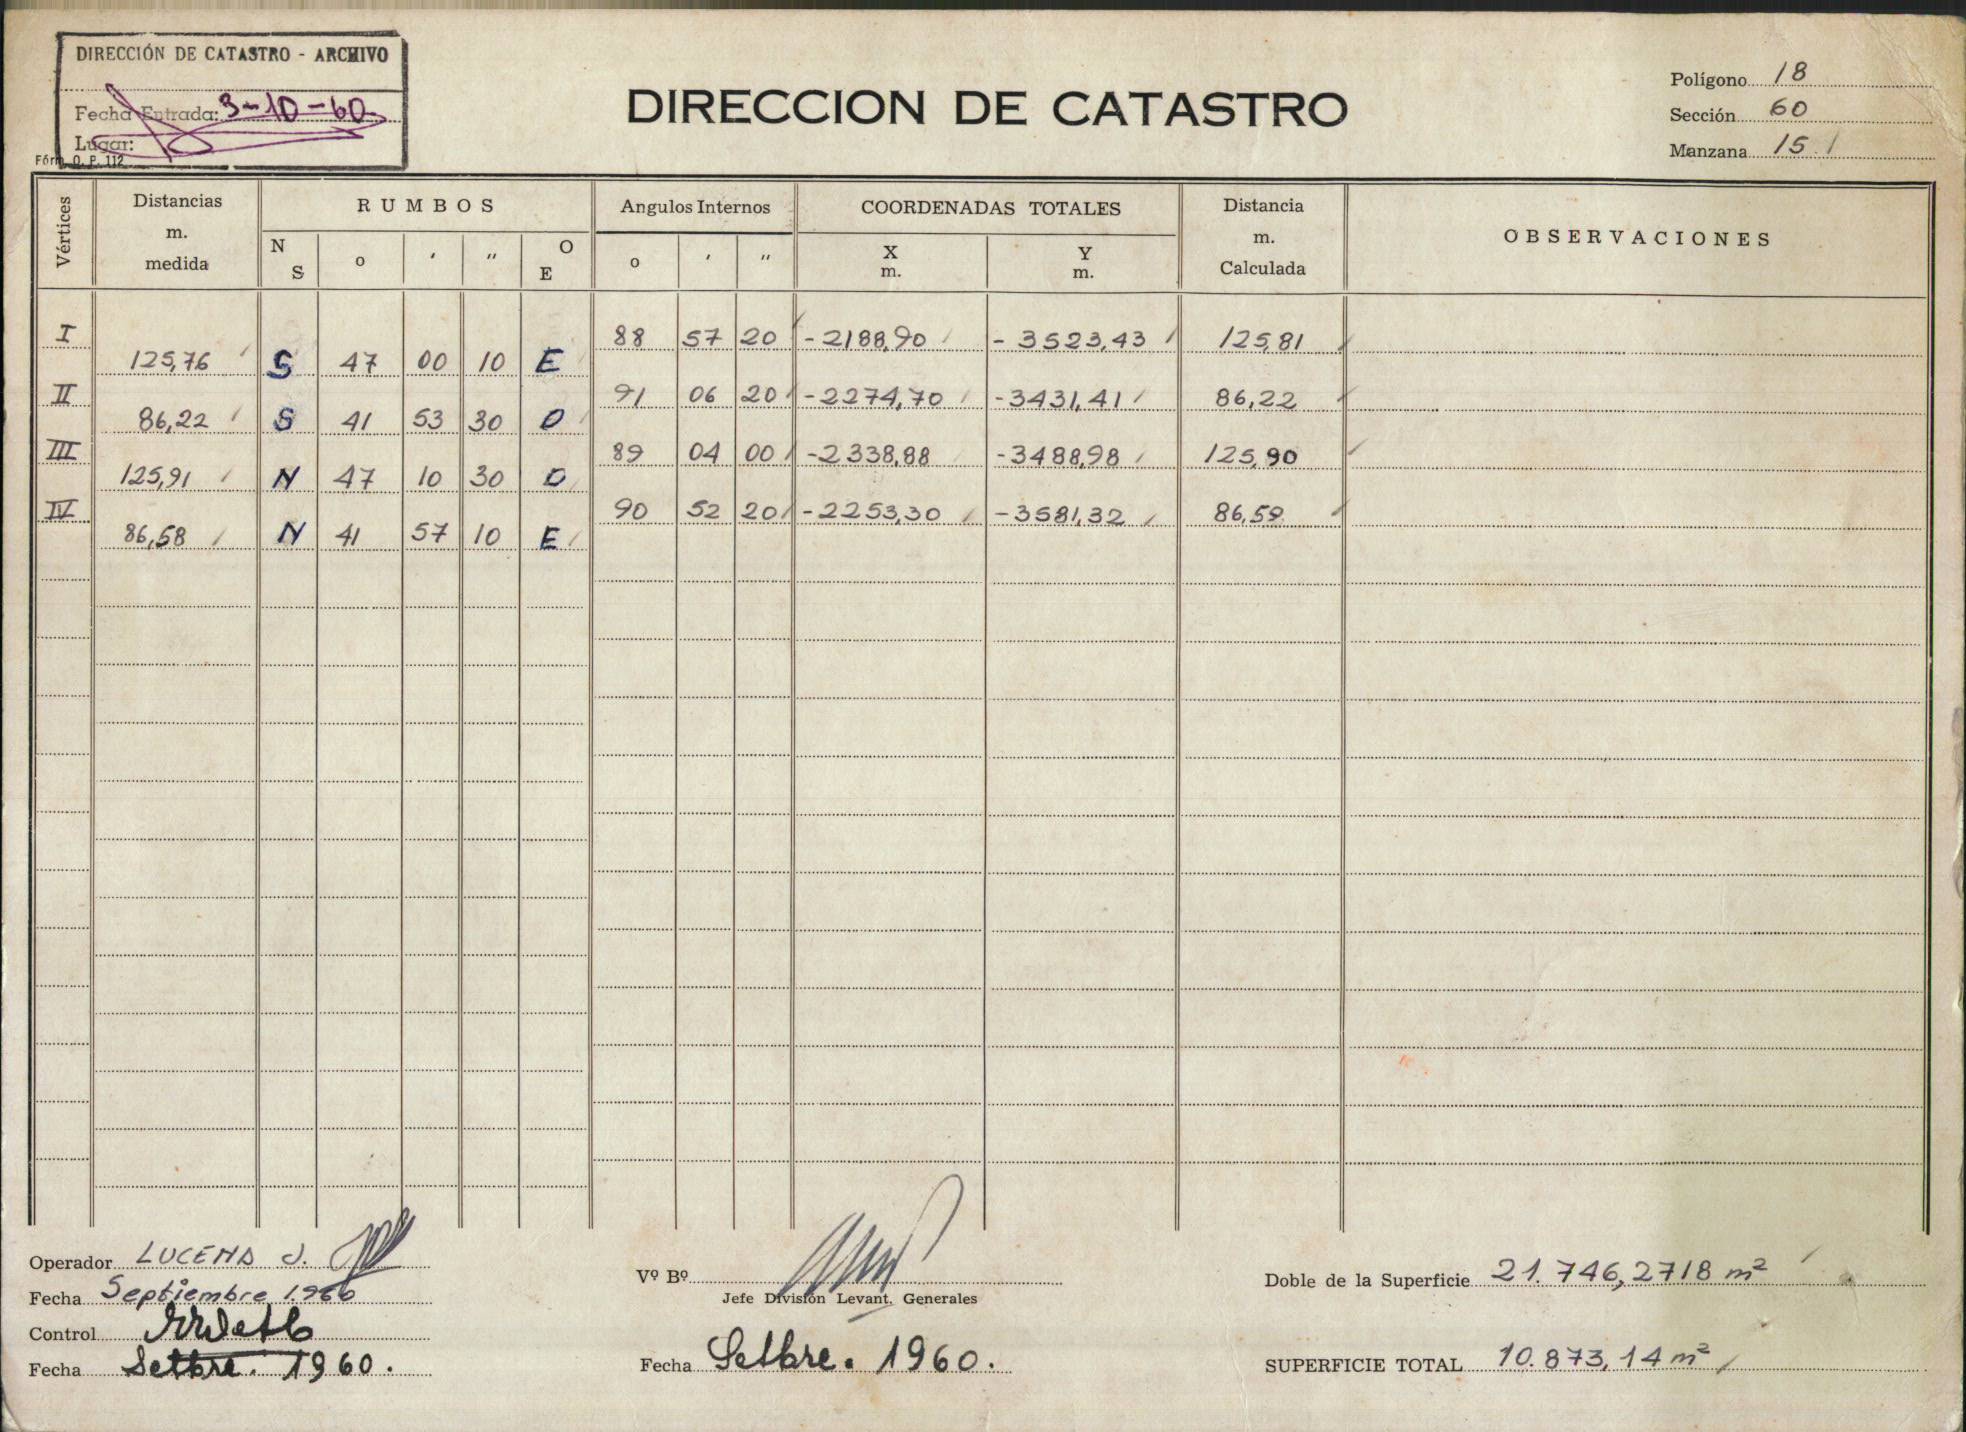 DIRECCIÓN DE CATASTRO - ARCHIVO
Fecha Entrada: 3-10-60
Lugar:
Fórm. O. P. 112
DIRECCION DE CATASTRO
Polígono 18
Sección 60
Manzana 15
Vértices Distancias m. medida RUMBOS Angulos Internos COORDENADAS TOTALES Distancia m. Calculada OBSERVACIONES
N S o ' '' O E o ' '' X m. Y m.
I 88 57 20 -2188,90 -3523,43 125,81
125,76 S 47 00 10 E
II 91 06 20 -2274,70 -3431,41 86,22
86,22 S 41 53 30 O
III 89 04 00 -2338,88 -3488,98 125,90
125,91 N 47 10 30 O
IV 90 52 20 -2253,30 -3581,32 86,59
86,58 N 41 57 10 E
Operador LUCENA J.
Fecha Septiembre 1.960
Control
Fecha Setbre. 1960.
Vº Bº
Jefe División Levant. Generales
Fecha Setbre. 1960.
Doble de la Superficie 21.746,2718 m²
SUPERFICIE TOTAL 10.873,14 m²